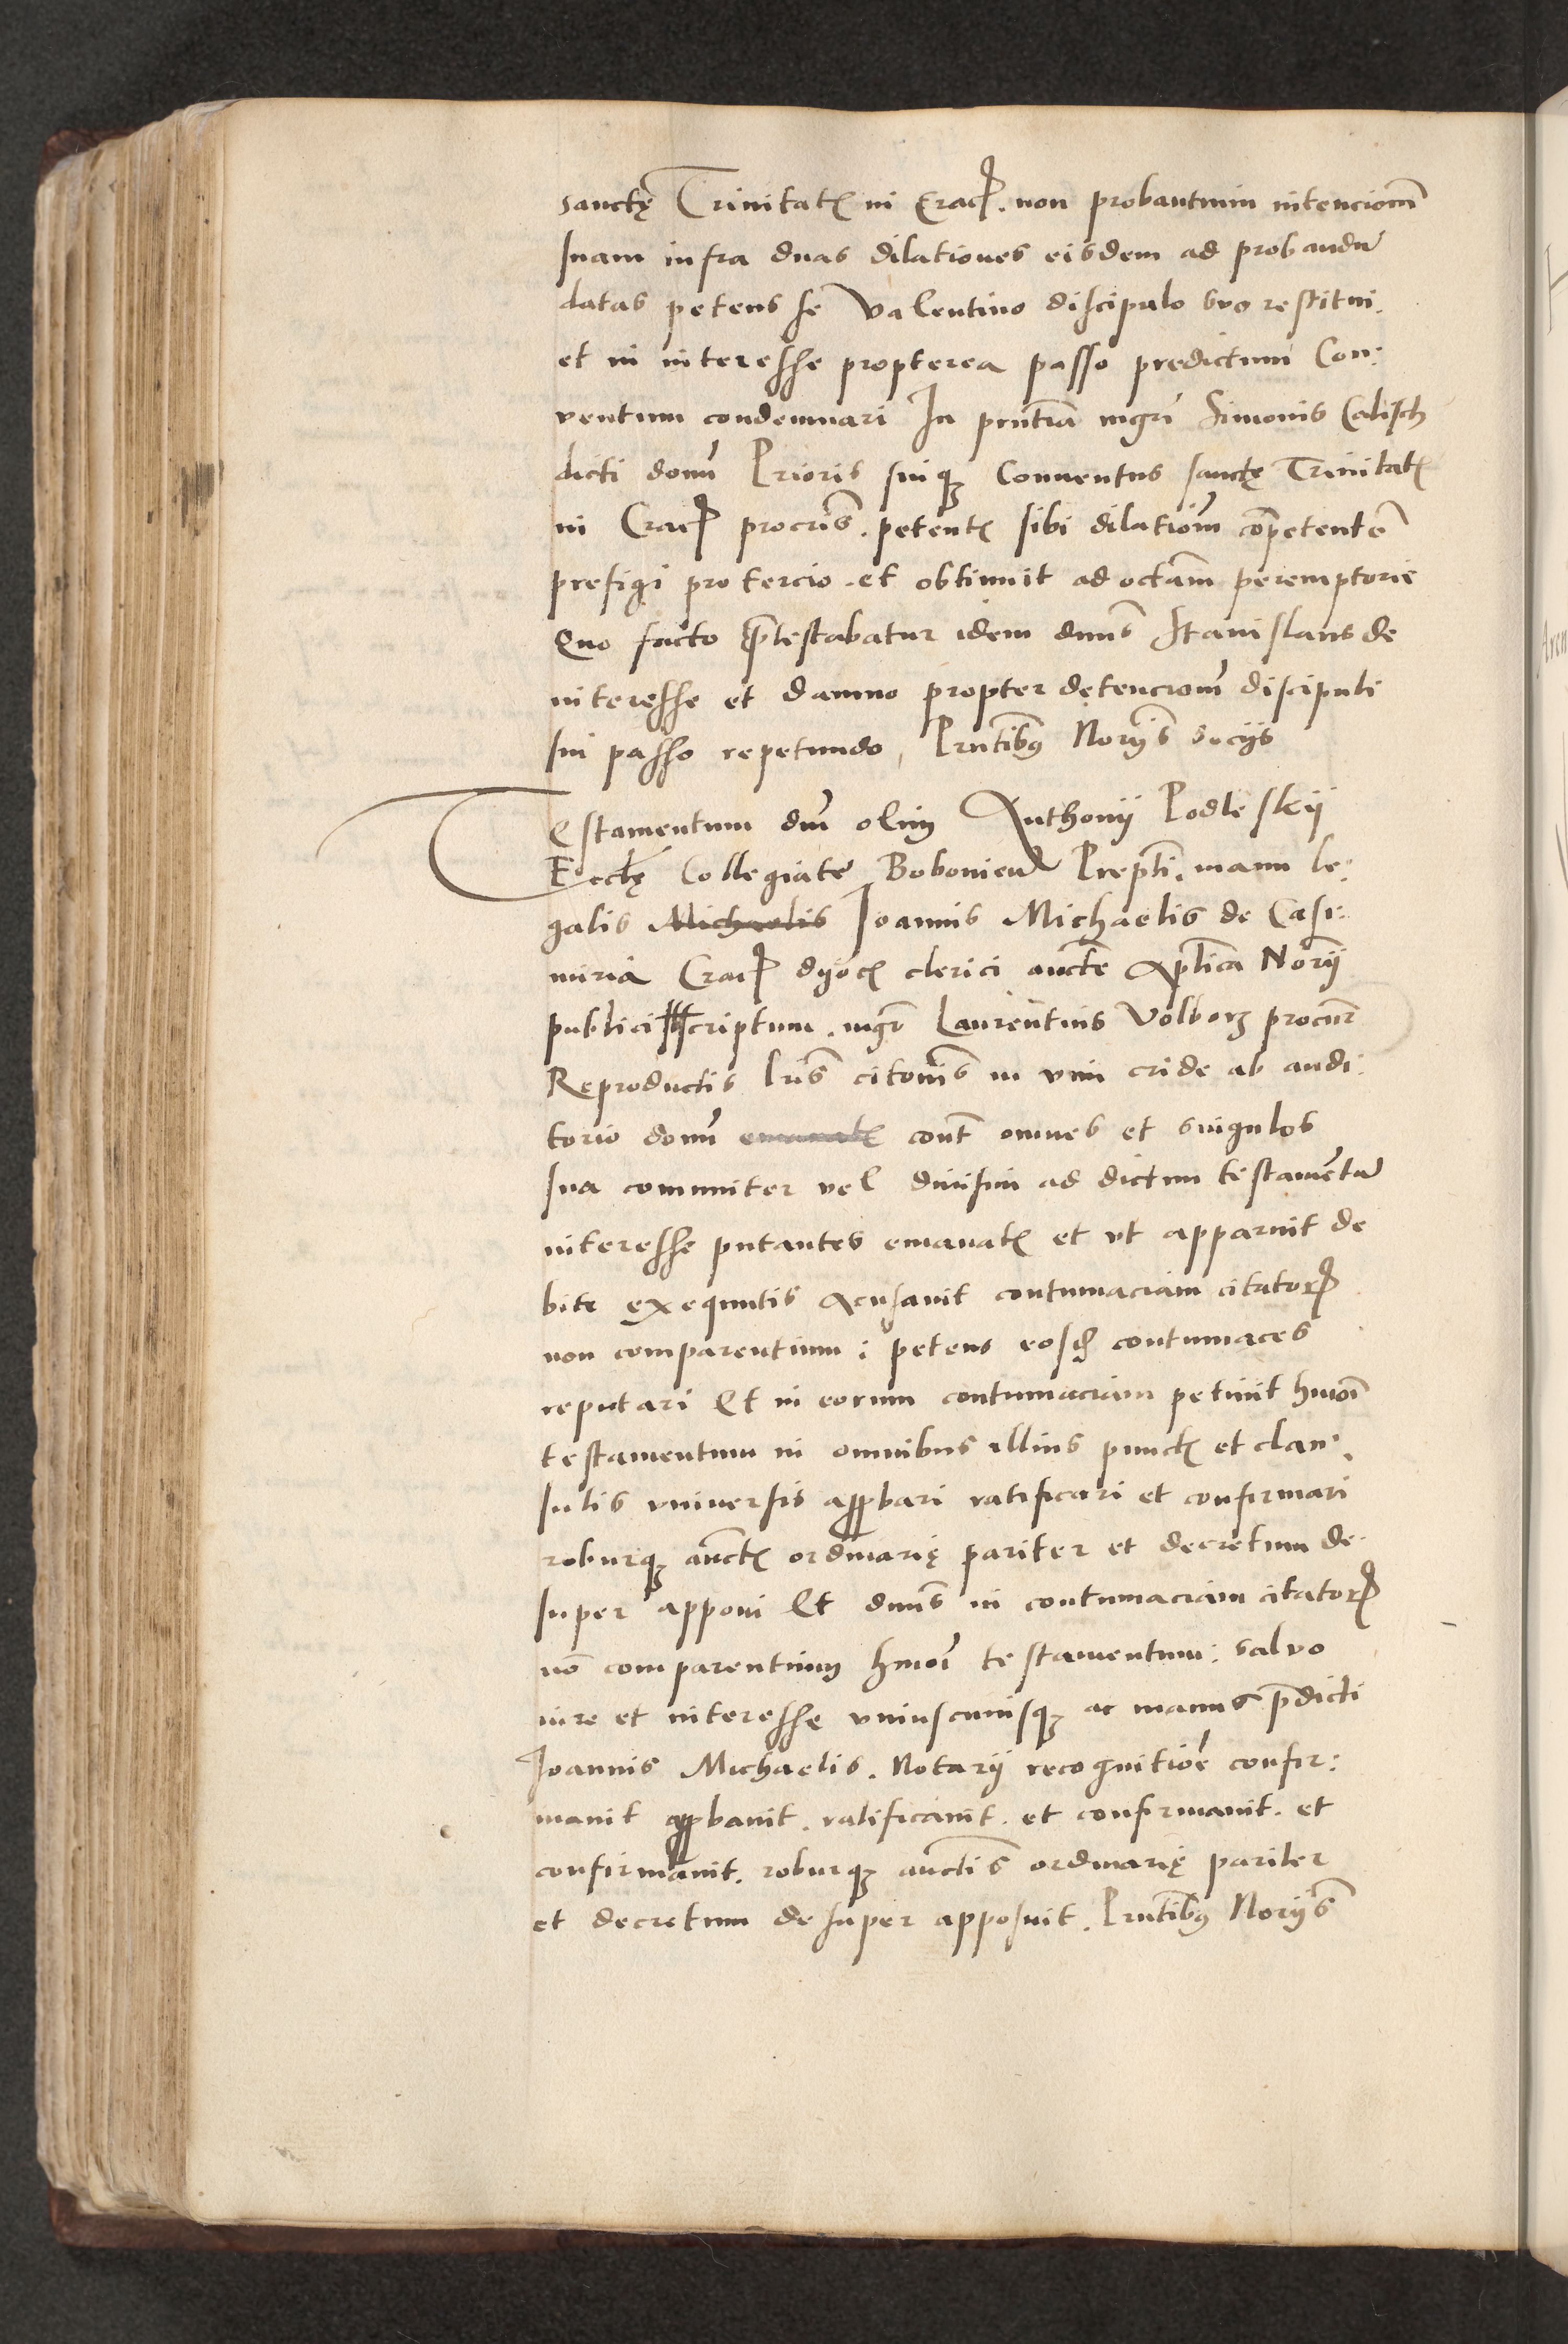 sanctę Trinitatꝭ in Cracꝭ. non probantium intencionē
suam infra duas dilationes eisdem ad probandū
datas petens se Valentino discipulo suo restitui.
et in interesse propterea passo predictum Con:
ventum condemnari In pñtia mgri Simonis Calisch
dicti domī Prioris suiqꝫ Conuentus sanctę Trinitatꝭ
in Cracꝭ procrīs. petentꝭ sibi dilationē cōpetentē
prefigi pro tercio. et obtinuit ad octauā peremptorie
Quo facto ꝓtestabatur idem dnūs Stanislaus de
interesse et damno propter detencionē discipuli
sui passo repetundo, Pn̄tibꝰ Norijs socijs
Testamentum dnī olim Anthonij Podleskij
Ecclę Collegiate Bobouien Prepti. manu le:
galis Michaelis Ioannis Michaelis de Casi:
miria Cracꝭ dyocꝭ clerici aucte Aplica Norij
publici scriptum. mgr Laurentius Volborz procur
Reproductis lrīs citonīs in vim cride ab audi:
torio domī emanatꝭ cont omnes et singulos
sua comuniter vel diuisim ad dictum testamentū
interesse putantes emanatꝭ et vt apparuit de
bite exequutis Acusauit contumaciam citatorꝭ
non comparentium: petens eosdē contumaces
reputari Et in eorum contumaciam petiuit hmōi
testamentum in omnibus illius punctꝭ et clau:
sulis vniuersis apꝓbari ratificari et confirmari
roburqꝫ auctꝭ ordinarię pariter et decretum de
super apponi Et dnūs in contumaciam citatorꝭ
nō comparentium hmōi testamentum: salvo
iure et interesse vniuscuiusqꝫ ac manus p̄dicti
Joannis Michaelis. Notarij recognitiōe confir:
mauit apꝓbauit. ratificauit. et confirmauit. et
confirmauit. roburqꝫ auctīs ordinarię pariter
et decretum desuper apposuit. Pn̄tibꝰ Norijs